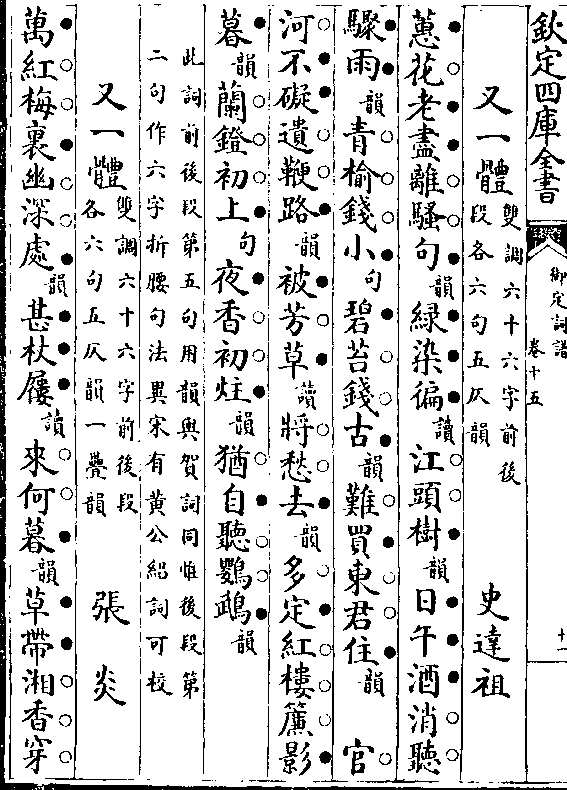 欽定四庫全書
御定詞譜
卷十五
十一
又一體 雙調六十六字前後
段各六句五仄韻 史達祖
蕙花老盡離騷句韻綠染徧讀江頭樹韻日午酒消聽
驟雨韻青榆錢小句碧苔錢古韻難買東君住韻 官
河不礙遺鞭路韻被芳草讀將愁去韻多定紅樓簾影
暮韻蘭鐙初上句夜香初炷韻猶自聽鸚鵡韻
此詞前後段第五句用韻與賀詞同惟後段第
二句作六字折腰句法異宋有黄公紹詞可校
又一體 雙調六十六字前後段
各六句五仄韻一疊韻 張炎
萬紅梅裏幽深處韻甚杖屨讀來何暮韻草帶湘香穿